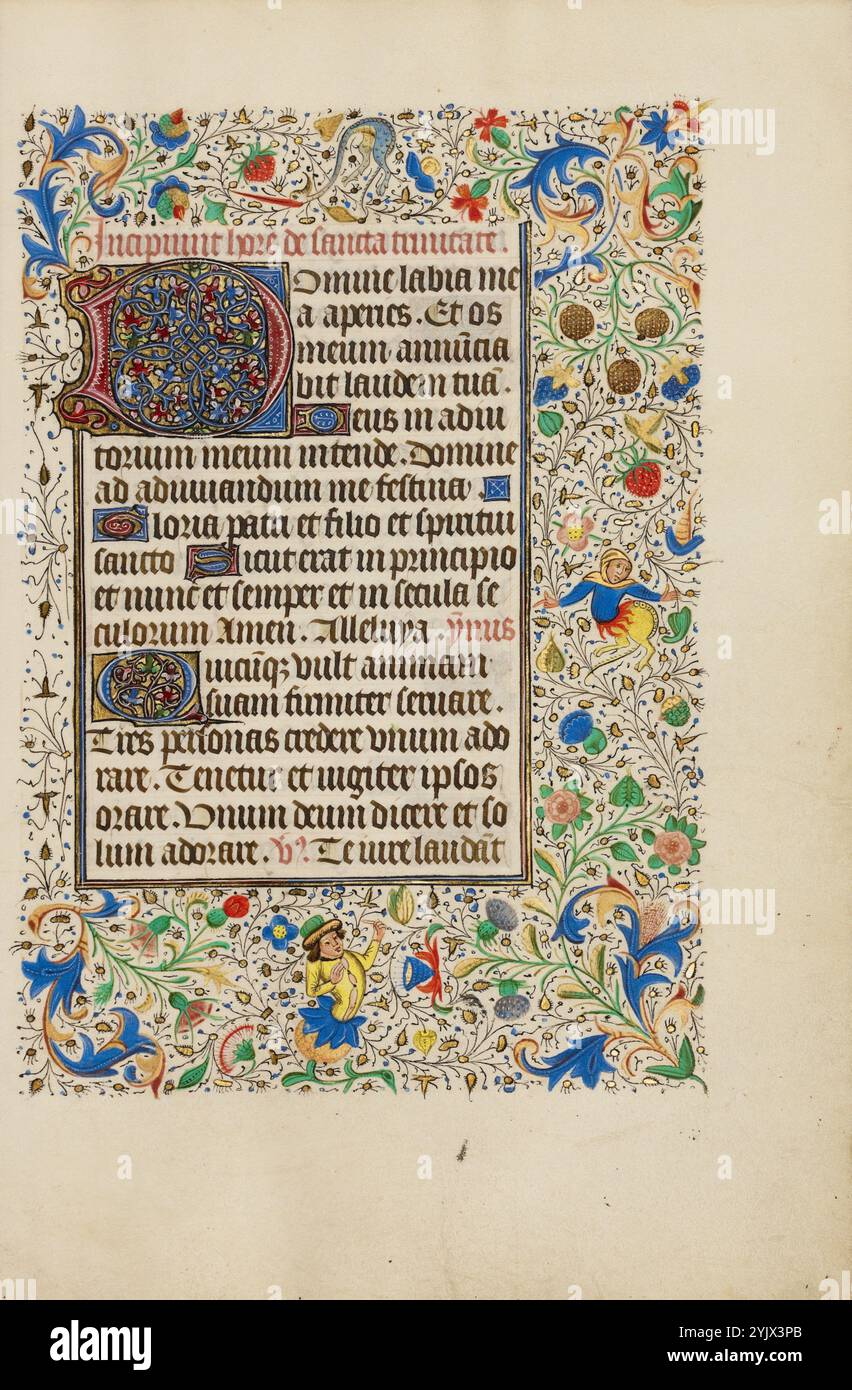 Incipiunt hore de sancta trinitate.
Domine labia me
a aperies. Et os
meum annūcia
bit laudem tuā.
Deus in adiu
torium meum intende. Domine
ad adiuvandum me festina
Gloria patri et filio et spiritui
sancto Sicut erat in principio
et nunc et semper et in secula se
culorum Amen. Alleluya. ymus
Quicūq; vult animam
suam firmiter servare.
Tres personas credere unum ado
rare. Tenetur et iugiter ipsos
orare. Unum deum dicere et so
lum adorare. V. Te iure laudāt
alamy
Image ID: 2YJX3PB
www.alamy.com